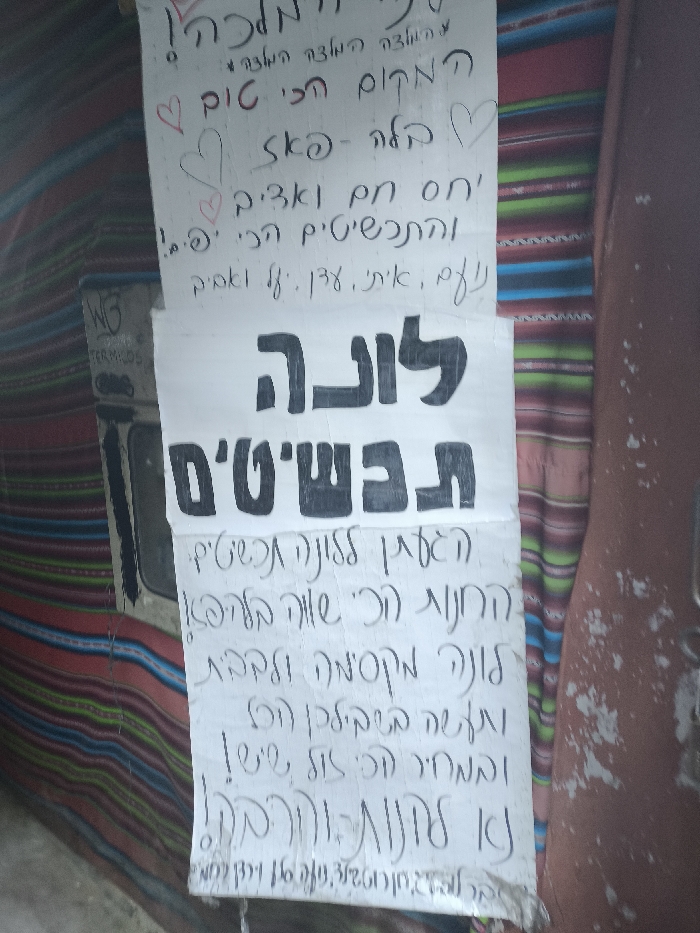 המלכה!
* המלצה המלצה המלצה *
המקום הכי טוב
בלה-פאז
יחס חם ואדיב
והתכשיטים הכי יפים!
נועם, איתי, עדן, יעל ואביב
לונה
תכשיטים
הגעתן ללונה תכשיטים
החנות הכי שווה בלה פאז!
לונה מקסימה ולבבית
ותעשה בשבילכן הכל
ובמחיר הכי זול שיש!
נא לקנות והרבה!
WG